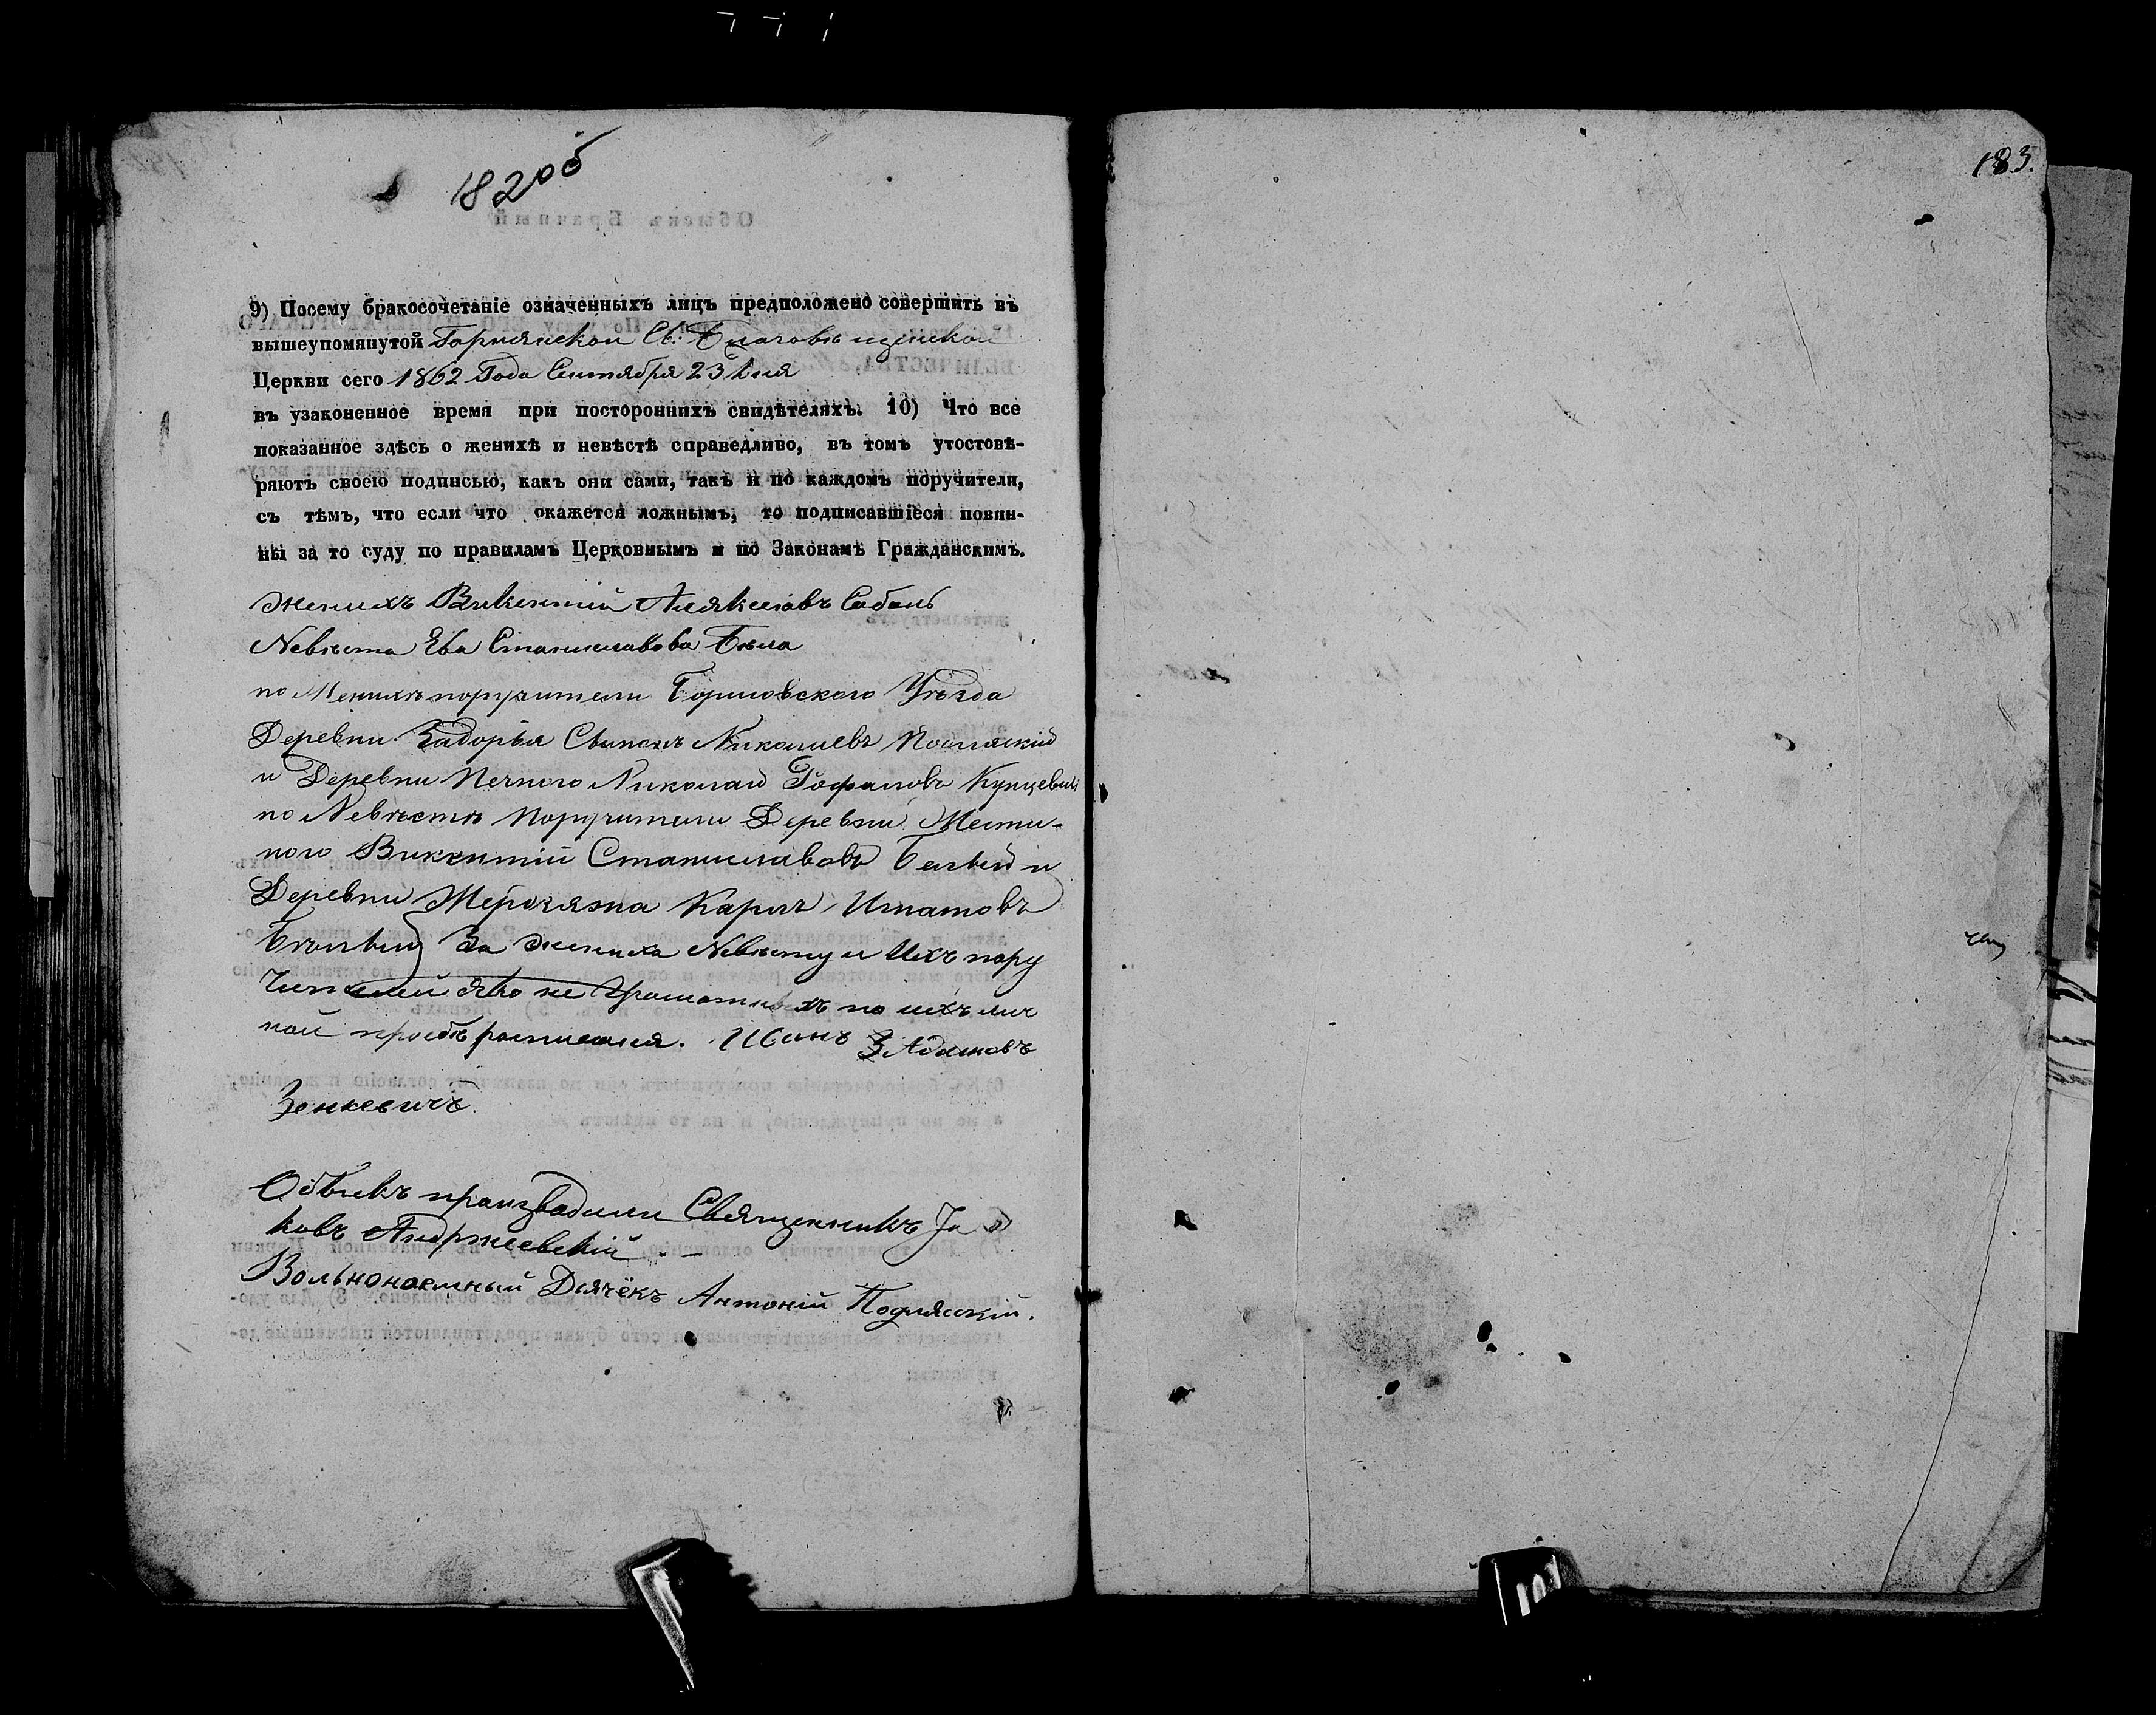 182об
183.
9) Посему бракосочетаніе означенныхъ лицъ предположено совершить въ
вышеупомянутой Горнянской Св: Благовѣщенской
Церкви сего 1862 Года Сентября 23 Дня
въ узаконенное время при постороннихъ свидѣтеляхъ. 10) Что все
показанное здѣсь о женихѣ и невѣстѣ справедливо, въ томъ утостовѣ-
ряютъ своею подписью, какъ они сами, такъ и по каждомъ поручители,
съ тѣмъ, что если что окажется ложнымъ, то подписавшіеся повин-
ны за то суду по правиламъ Церковнымъ и по Законамъ Гражданскимъ.
Женихъ Викентій Сабаль
Невѣста Ева Станиславова Бѣла
по Женихѣ поручители Борисовскаго Уѣзда
Деревни Задорья Николаевъ
и Деревни Николай Куцевичъ
по Невѣстѣ Поручители Деревни
Викентій Станиславовъ Белый и
Деревни Карлъ Игнатовъ
Бѣлый За Жениха Невѣсту и Ихъ пору
чителей яко не Грамотныхъ по ихъ лич
ной прозбѣ росписался. Иванъ Адамовъ
Зенкевичъ.
Обыскъ производили Священникъ Іа
ковъ Андржеевскій. —
Вольнонаемный Дьячёкъ Антоній Подлясскій.